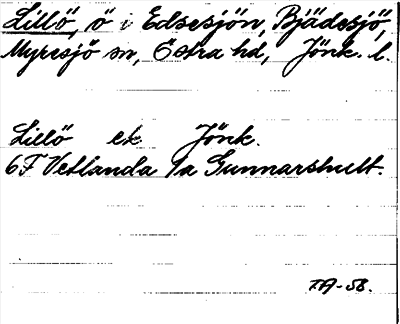 Lillö, ö i Edsesjön, Bjädesjö,
Myresjö sn, Östra hd, Jönk. l.
Lillö ek Jönk.
6F Vetlanda 1a Gunnarshult.
TA-58.